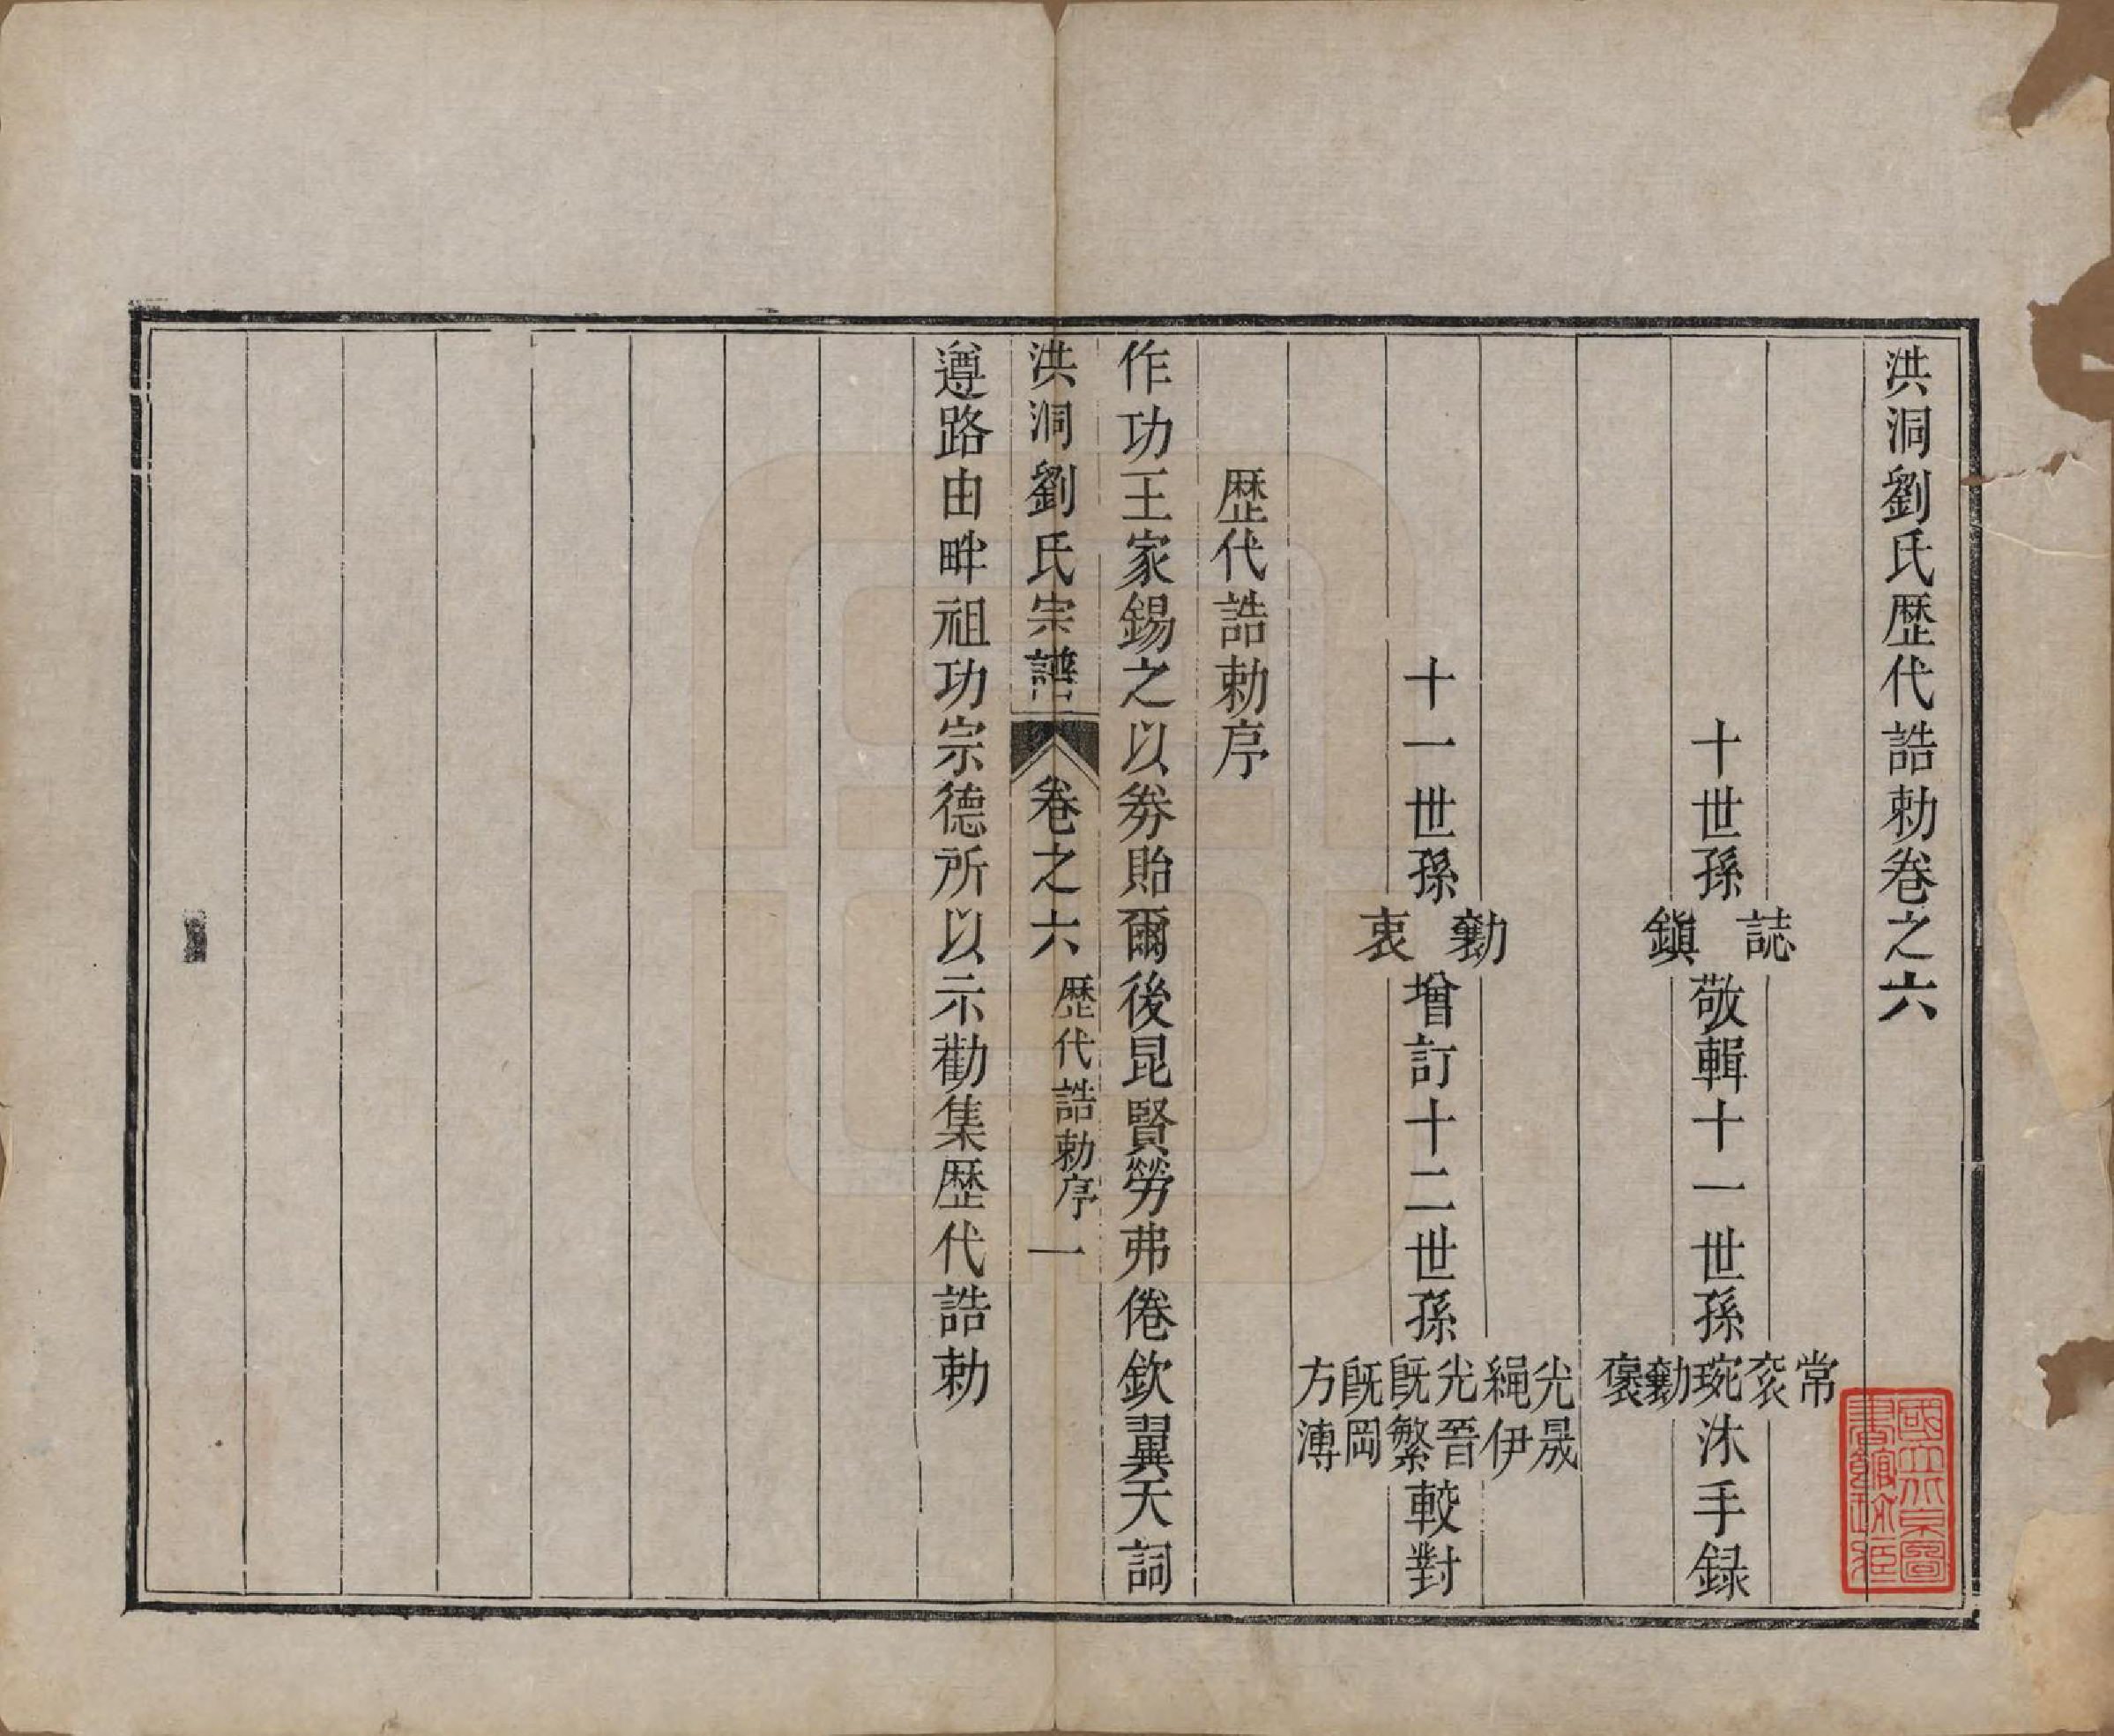 洪洞劉氏歷代誥勅卷之六
十世孫誌鎭敬輯十一世孫常衮琬勷褒沐手録
十一世孫勷衷增訂十二世孫光晟繩伊光晉旣繁旣岡方溥較對
歷代誥勅序
作功王家錫之以劵貽爾後昆賢勞弗倦欽翼天詞
洪洞劉氏宗譜 卷之六 歷代誥勅序 一
遵路由畔祖功宗德所以示勸集歷代誥勅
國立北京圖書館珍藏